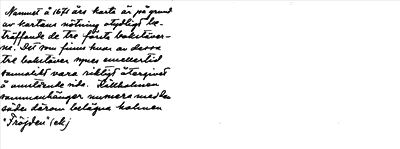 Namnet å 1671 års karta är på grund
av kartans nötning otydligt be-
träffande de tre första bokstäver-
na. Det som finns kvar av dessa
tre bokstäver synes emellertid
sannolikt vara riktigt återgivet
å omstående sida. Källholmen
sammanhänger numera med den
söder därom belägna holmen
"Fröjden" (ek)